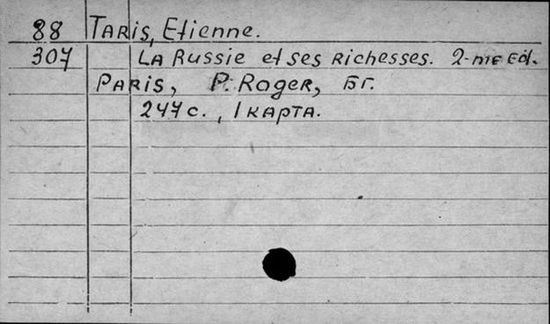 88 Taris, Etienne.
307 La Russie et ses richesses. 2-me Ed.
Paris, P. Roger, бг.
247 с., 1 карта.